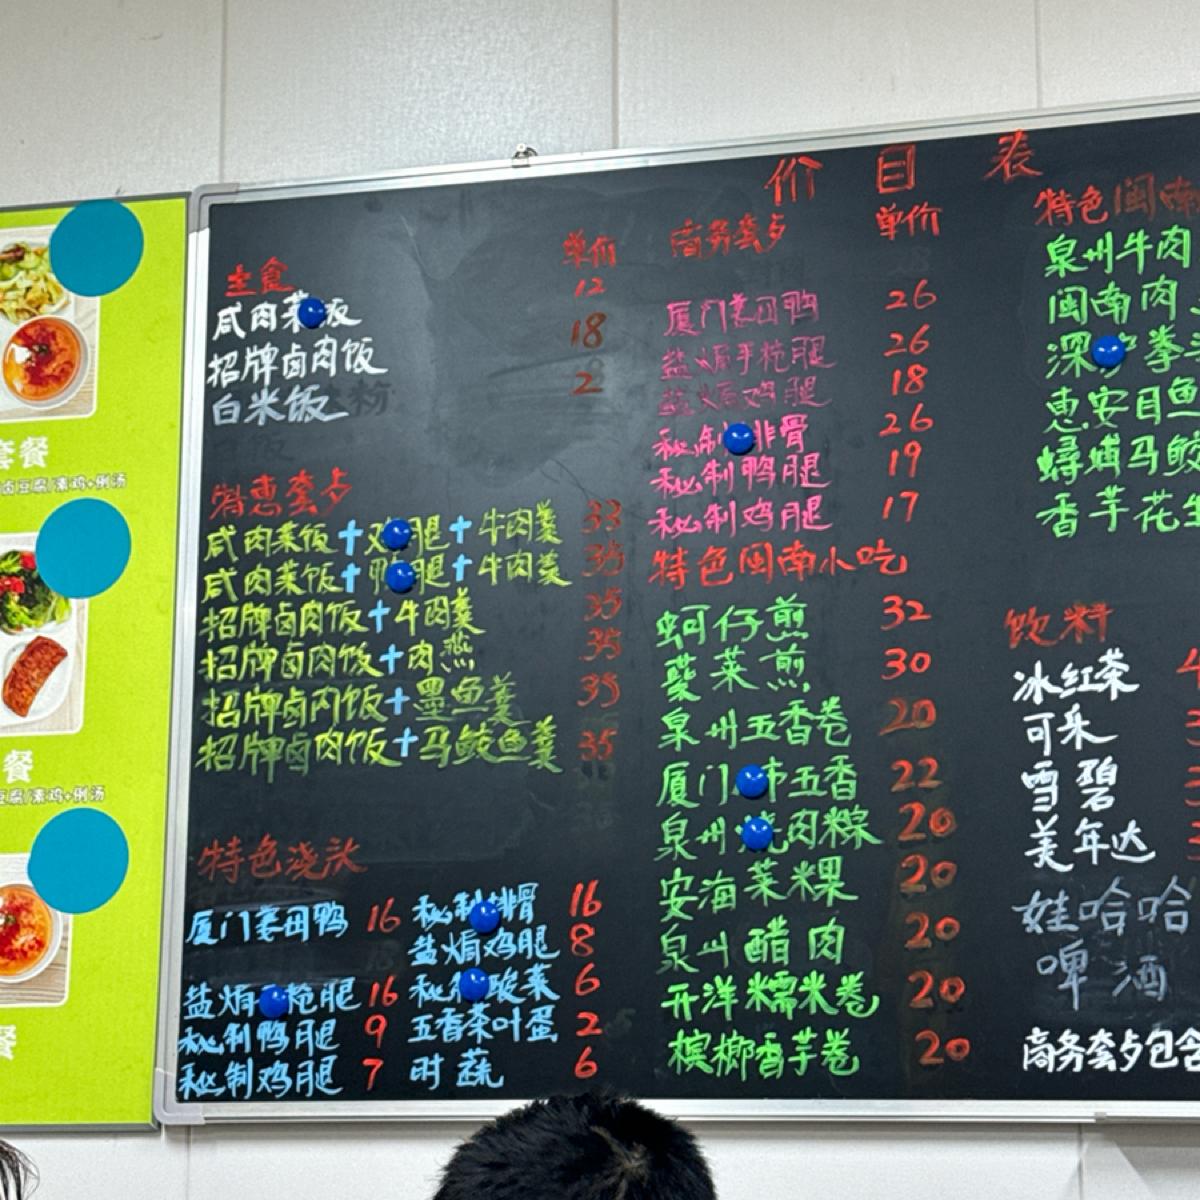 价目表
主食 单价
咸肉菜饭 12
招牌卤肉饭 18
白米饭 2
特惠套歺
咸肉菜饭+鸡腿+牛肉羹 33
咸肉菜饭+鸭腿+牛肉羹 35
招牌卤肉饭+牛肉羹 35
招牌卤肉饭+肉燕 35
招牌卤肉饭+墨鱼羹 35
招牌卤肉饭+马鲛鱼羹 35
特色浇头
厦门姜母鸭 16 秘制排骨 16
盐焗鸡腿 8
盐焗手枪腿 16 秘制酸菜 6
秘制鸭腿 9 五香茶叶蛋 2
秘制鸡腿 7 时蔬 6
商务套歺 单价
厦门姜母鸭 26
盐焗手枪腿 26
盐焗鸡腿 18
秘制排骨 26
秘制鸭腿 19
秘制鸡腿 17
特色闽南小吃
蚵仔煎 32
菜煎 30
泉州五香卷 20
厦门市五香 22
泉州烧肉粽 20
安海菜粿 20
泉州醋肉 20
开洋糯米卷 20
槟榔香芋卷 20
特色闽南
泉州牛肉
闽南肉
深沪拳
惠安目鱼
蟳埔马鲛
香芋花生
饮料
冰红茶 4
可乐
雪碧
美年达
娃哈哈
啤酒
商务套歺包含
套餐
卤豆腐/素鸡+例汤
餐
豆腐/素鸡+例汤
餐